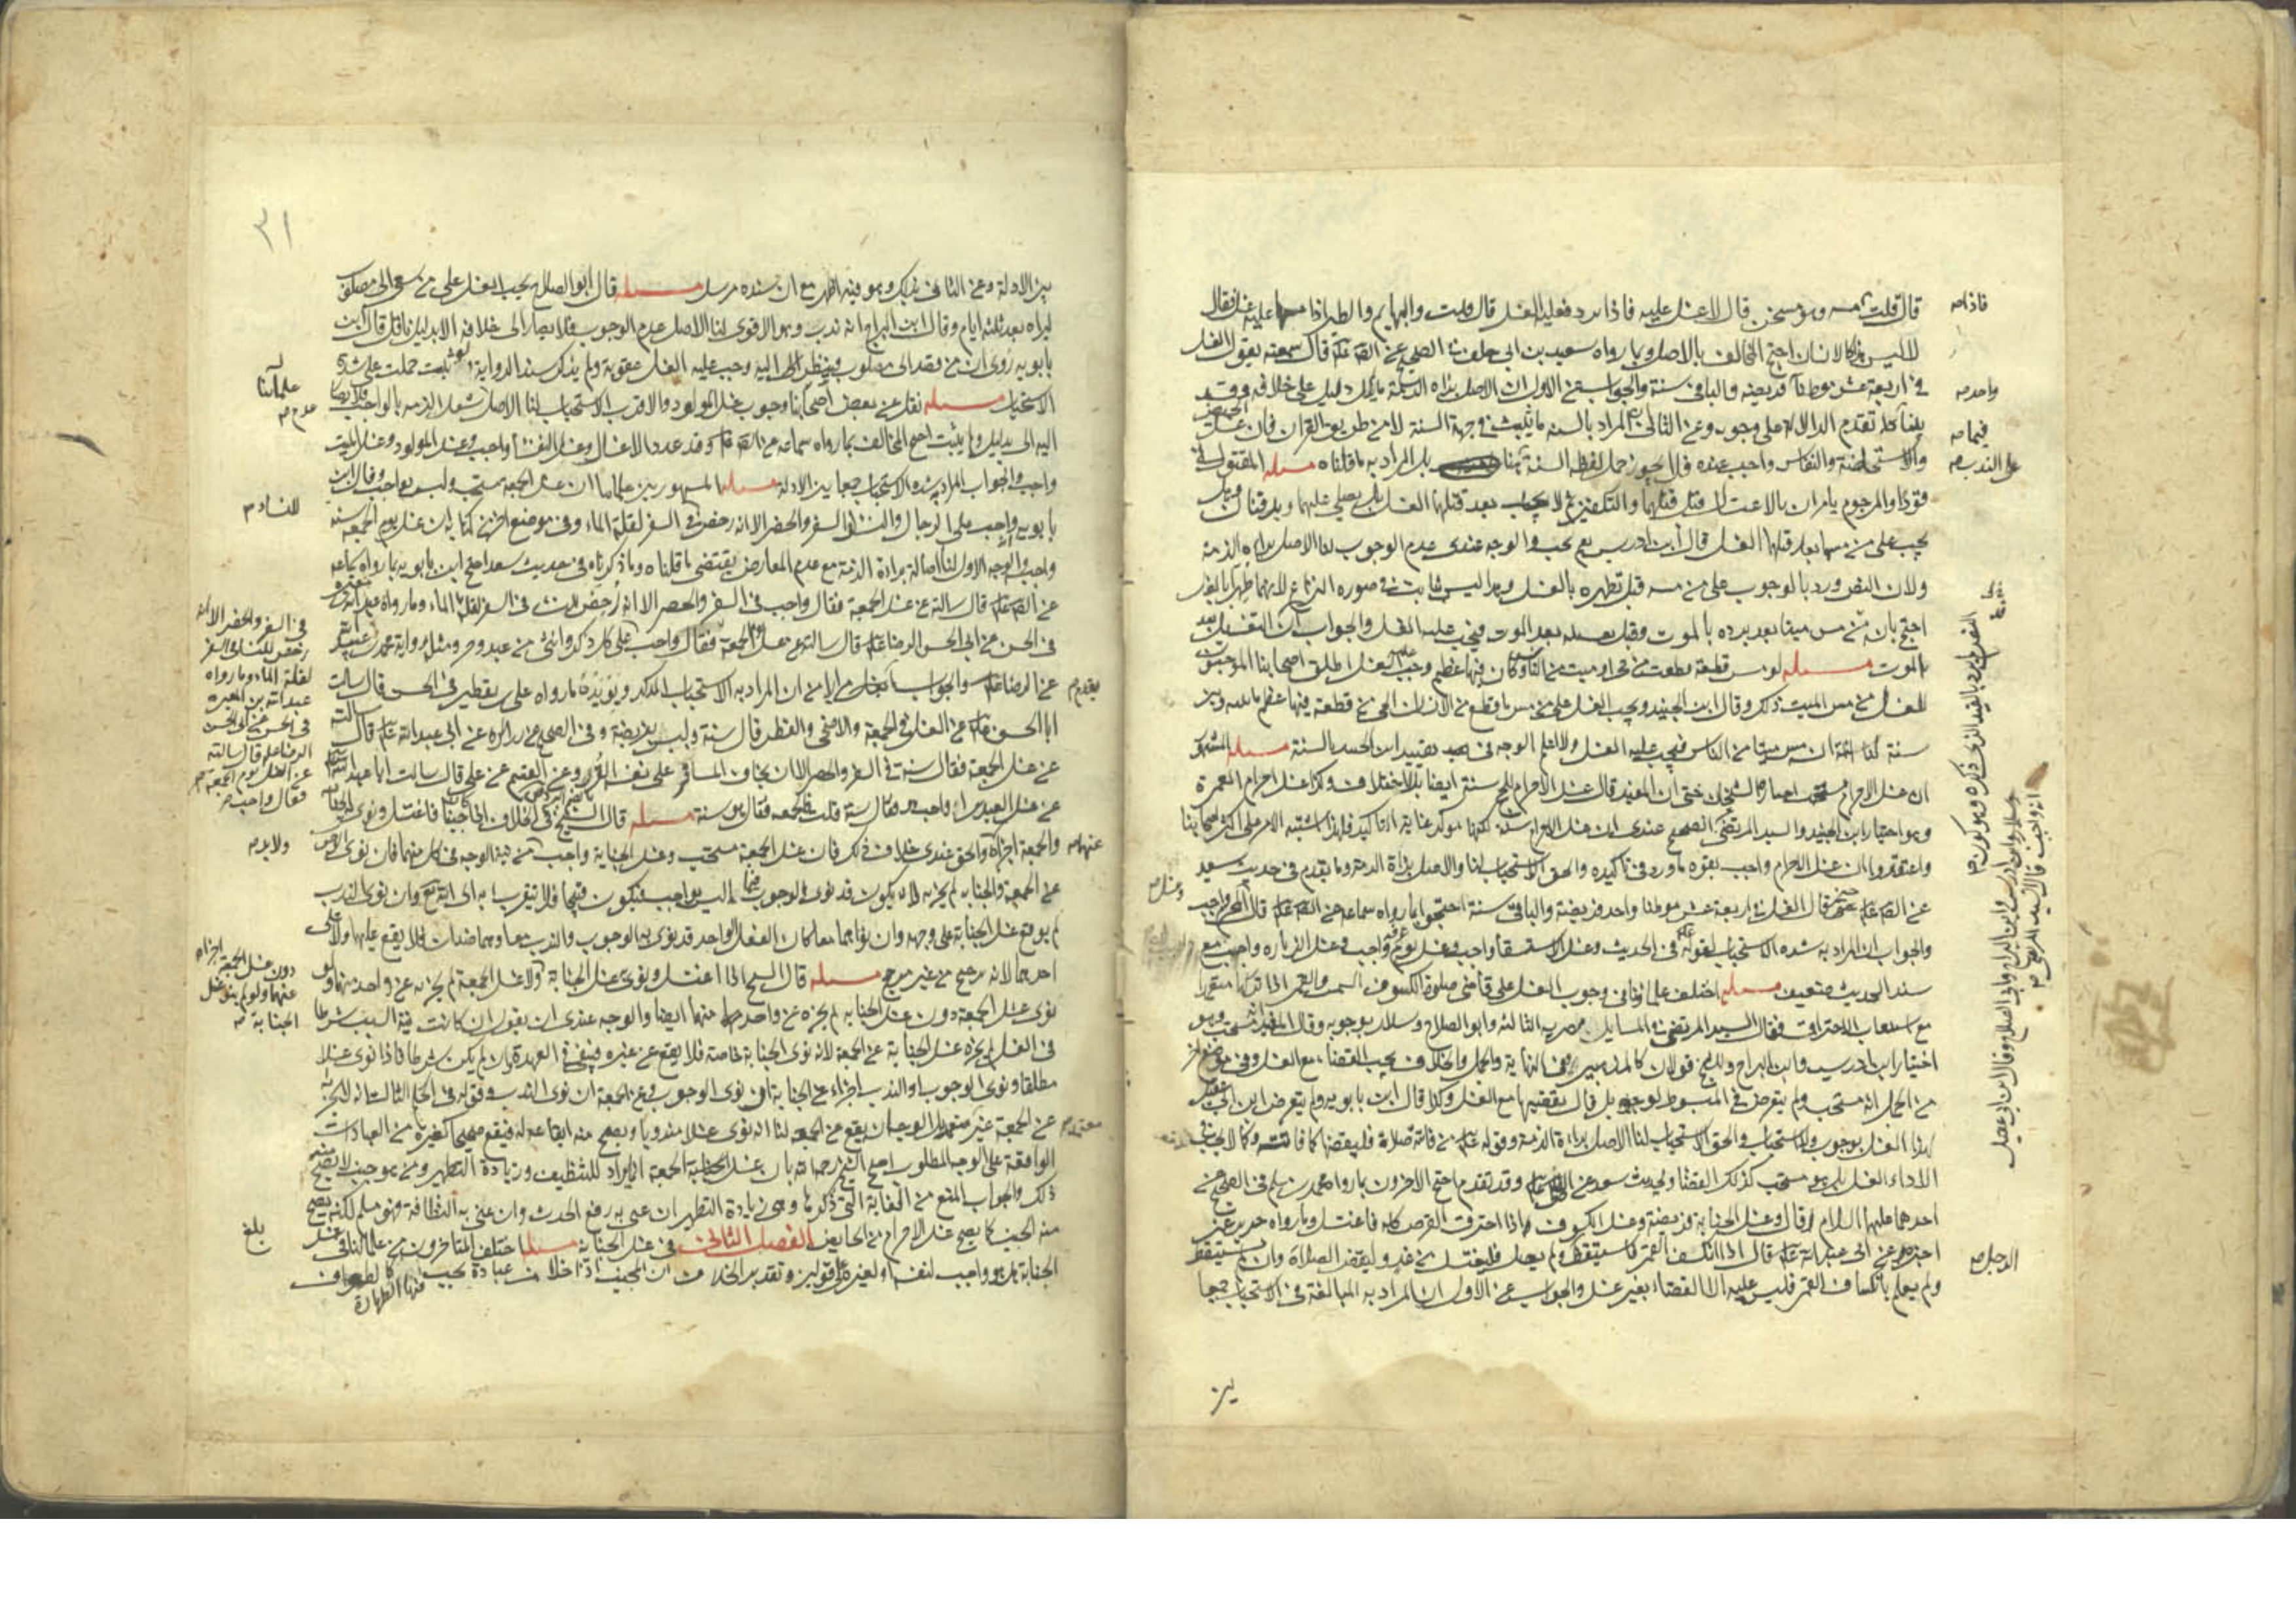 قال قلت فمسه وهو سخن قال لا غسل عليه فاذا برد فعليه الغسل قال قلت والبهايم والطير اذا مسها عليه غسل قال
لا ليس هذا كالانسان احتج المخالف بالاصل وبما رواه سعيد بن ابي خلف في الصحيح عن الصادق قال سمعته يقول الغسل
في اربعة عشر موطنا فريضة والباقي سنة والجواب عن الاول ان الاصل براءة الذمة ما لم يكن دليل على خلافه وقد
بينا تقدم الدلالة على وجوبه وعن الثاني ان المراد بالسنة ما ثبت من جهة السنة لا من طريق القران فان غسل
والاستحاضة والنفاس واجب عنده فلا يجوز حمل لفظ السنة هنا بل المراد به ما قلناه مسله المقتول
قودا والمرجوم يامران بالاغتسال قبل قتلهما والتكفين ثم لا يجب بعد قتلهما الغسل بل يصلي عليهما ويدفنان وهل
يجب على من مسهما بعد قتلهما الغسل قال ابن ادريس نعم يجب والوجه عندي عدم الوجوب لنا الاصل براءة الذمة
ولان النص ورد بالوجوب على من مسه قبل تطهره بالغسل وهذا ليس ثابت في صورة النزاع لانهما طهرا بالغسل
احتج بان من مس ميتا بعد برده بالموت وقبل غسله بعد الموت فيجب عليه الغسل والجواب ان التغسيل بعد
الموت مسله لو مس قطعة قطعت من حي او ميت من الناس وكان فيها عظم وجب الغسل اطلق اصحابنا الموجبون
للغسل من مس الميت ذلك وقال ابن الجنيد ويجب الغسل على من مس ما قطع من الانسان الحي من قطعة فيها عظم ما بينه وبين
سنة لنا انه ان مس ميتا من الناس فيجب عليه الغسل ولا اعلم الوجه في تقييد ابن الجنيد بالسنة مسله المشهور
ان غسل الاحرام مستحب اختاره الشيخان حتى ان المفيد قال غسل الاحرام للحج سنة ايضا بلا اختلاف وكذا غسل احرام العمرة
وهو اختيار ابن الجنيد والسيد المرتضى الصحيح عندي ان غسل الاحرام سنة لكنها موكد غاية التاكيد فلهذا اشتبه الامر على اكثر اصحابنا
واعتقدوا ان غسل الاحرام واجب بقوة ما ورد في تاكيده والحق الاستحباب لنا والاصل براءة الذمة وما تقدم في حديث سعد
عن الصادق قال الغسل في اربعة عشر موطنا واحد فريضة والباقي سنة احتجوا بما رواه سماعة عن الصادق قال المحرم واجب
والجواب ان المراد به شدة الاستحباب لقوله في الحديث وغسل الاستسقاء واجب وغسل يوم عرفة واجب وغسل الزيارة واجب مع
سند الحديث ضعيف مسله اختلف علماؤنا في وجوب الغسل على قاضي صلوة الكسوف الشمس والقمر اذا تركها متعمدا
مع استيعاب الاحتراق فقال السيد المرتضى في المسايل المصرية الثالثة وابو الصلاح وسلار بوجوبه وقال المفيد مستحب وهو
اختيار ابن ادريس وابن البراج وللشيخ قولان كالمذهبين ففي النهاية والجمل والخلاف يجب القضاء مع الغسل وفي موضع اخر
من الجمل انه مستحب ولم يتعرض في المبسوط لوجوبه بل قال يقضيها مع الغسل وكذا قال ابن بابويه ولم يتعرض ابن ابي عقيل
لهذا الغسل بوجوب ولا استحباب والحق الاستحباب لنا الاصل براءة الذمة وقوله من فاتته صلاة فليقضها كما فاتته وكما لا يجب في
الاداء الغسل بل هو مستحب كذلك القضاء ولحديث سعد عن الصادق وقد تقدم احتج الاخرون بما رواه محمد بن مسلم في الصحيح عن
احدهما عليهما السلام قال وغسل الجنابة فريضة وغسل الكسوف اذا احترق القرص كله فاغتسل وبما رواه حريز عمن
اخبره عن ابي عبد الله قال اذا انكسف القمر فاستيقظ ولم يصل فليغتسل من غد وليقض الصلاة وان لم يستيقظ
ولم يعلم بانكساف القمر فليس عليه الا القضاء بغير غسل والجواب عن الاول ان المراد به المبالغة في الاستحباب جمعا
فاذا
واحد
فيما
على الندب
الرجل
وغسل
بين
٣١
بين الادلة وعن الثاني بذلك وهو فيه اظهر مع ان سنده مرسل مسله قال ابو الصلاح يجب الغسل على من سعى الى مصلوب
ليراه بعد ثلثة ايام وقال ابن البراج انه ندب وهو الاقوى لنا الاصل عدم الوجوب فلا يصار الى خلافه الا بدليل ناقل قال ابن
بابويه روي ان من قصد الى مصلوب فنظر اليه وجب عليه الغسل عقوبة ولم يذكر سند الرواية ثبت حملت على شدة
الاستحباب مسله نقل عن بعض اصحابنا وجوب غسل المولود والاقرب الاستحباب لنا الاصل شغل الذمة بالواجب فلا يصار
اليه الا بدليل ولم يثبت احتج المخالف بما رواه سماعة عن الصادق وقد عدد الاغسال وغسل النفساء واجب وغسل المولود وغسل الميت
واجب والجواب المراد به شدة الاستحباب جمعا بين الادلة مسله المشهور بين علمائنا ان غسل الجمعة مستحب وليس بواجب وقال ابن
بابويه واجب على الرجال والنساء في السفر والحضر الا انه رخص في السفر لقلة الماء وفي موضع اخر من كتابه ان غسل يوم الجمعة سنة
واجب والوجه الاول لنا اصالة براءة الذمة مع عدم المعارض يقتضي ما قلناه وما ذكرناه في حديث سعد احتج ابن بابويه بما رواه سماعة
عن الصادق قال سالته عن غسل الجمعة فقال واجب في السفر والحضر الا انه رخص للنساء في السفر لقلة الماء وما رواه عبد الله
في الحسن عن ابي الحسن الرضا قال سالته عن غسل الجمعة فقال واجب على كل ذكر وانثى من عبد وحر ومثله رواية محمد بن عبد الله
عن الرضا والجواب ان المراد به الاستحباب المؤكد ويؤيده ما رواه علي بن يقطين في الحسن قال سالت
ابا الحسن عن الغسل في الجمعة والاضحى والفطر قال سنة وليس بفريضة وفي الصحيح عن زرارة عن ابي عبد الله قال سالته
عن غسل الجمعة فقال سنة في السفر والحضر الا ان يخاف المسافر على نفسه القر وعن القسم عن علي قال سالت ابا عبد الله
عن غسل العيدين اواجب هو قال سنة قلت فالجمعة فقال هو سنة مسله قال الشيخ في الخلاف اذا اجنب فاغتسل ونوى الجنابة
والجمعة اجزأه والحق عندي خلاف ذلك فان غسل الجمعة مستحب وغسل الجنابة واجب من نية الوجه في كل منهما فان نوى الوجوب
عن الجمعة والجنابة لم يجزه لانه يكون قد نوى الوجوب فيما ليس بواجب فيكون قبيحا فلا يتقرب به الى الله تعالى وان نوى الندب
لم يوقع غسل الجنابة على وجهه وان نواهما معا كان الفعل الواحد قد نوى به الوجوب والندب معا وهما ضدان فلا يقع عليهما ولا على
احدهما لانه ترجيح من غير مرجح مسله قال الشيخ اذا اغتسل ونوى غسل الجنابة ولا غسل الجمعة لم يجزه عن واحد منهما ولو
نوى غسل الجمعة دون غسل الجنابة لم يجزه عن واحد منهما ايضا والوجه عندي ان نقول ان كانت نية السبب شرطا
في الغسل لم يجزه غسل الجنابة عن الجمعة لانه نوى الجنابة خاصة فلا يقع عن غيره فيبقى في العهدة وان لم يكن شرطا فاذا نوى غسلا
مطلقا ونوى الوجوب او الندب اجزاء عن الجنابة ان نوى الوجوب وعن الجمعة ان نوى الندب وقوله في الحال الثالث انه لا يجزيه
عن الجمعة غير معتمد بل الوجه ان يقع عن الجمعة لنا انه نوى غسلا مندوبا ويصح منه ايقاعه له فيقع صحيحا كغيره من العبادات
الواقعة على الوجه المطلوب احتج الشيخ رحمه الله بان غسل الجمعة انما يراد للتنظيف وزيادة التطهير ومن هو جنب لا يصح منه
ذلك والجواب المنع من الغاية التي ذكرها وهي زيادة التطهير ان عنى به رفع الحدث وان عنى به النظافة فهو مسلم لكنه يصح
من الجنب كما يصح غسل الاحرام من الحايض الفصل الثاني في غسل الجنابة مسله اختلف المتاخرون من علمائنا في غسل
الجنابة هل هو واجب لنفسه او لغيره على قولين وتقدير الخلاف ان المجنب اذا خلا من عبادة يجب فيها الطهارة كالطواف
علمائنا
عدم
للنساء
في السفر والحضر الا انه
رخص للنساء في السفر
لقلة الماء وما رواه
عبد الله بن المغيرة
في الحسن عن ابي الحسن
الرضا قال سالته
عن الغسل يوم الجمعة
فقال واجب
تقدم
عنهما
ولا بد
دون غسل الجمعة اجزاه
عنهما ولو لم ينو غسل
الجنابة
معتمد
بلغ